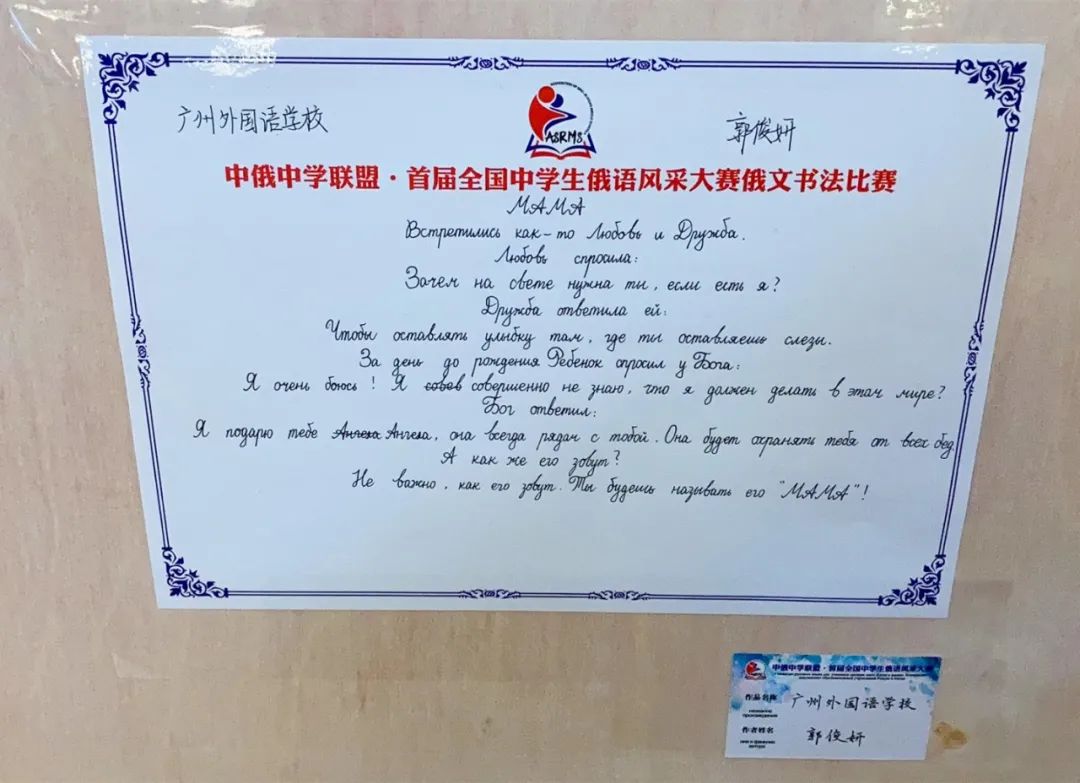 广州外国语学校
ASRMS
郭俊妍
中俄中学联盟·首届全国中学生俄语风采大赛俄文书法比赛
МАМА
Встретились как-то Любовь и Дружба.
Любовь спросила:
Зачем на свете нужна ты, если есть я?
Дружба ответила ей:
Чтобы оставлять улыбку там, где ты оставляешь слезы.
За день до рождения Ребенок спросил у Бога:
Я очень боюсь! Я совев совершенно не знаю, что я должен делать в этом мире?
Бог ответил:
Я подарю тебе Ангела Ангела, она всегда рядом с тобой. Она будет охранять тебя от всех бед.
А как же его зовут?
Не важно, как его зовут. Ты будешь называть его "МАМА"!
中俄中学联盟·首届全国中学生俄语风采大赛
作品名称
广州外国语学校
название
произведения
作者姓名
郭俊妍
имя и фамилия
автора